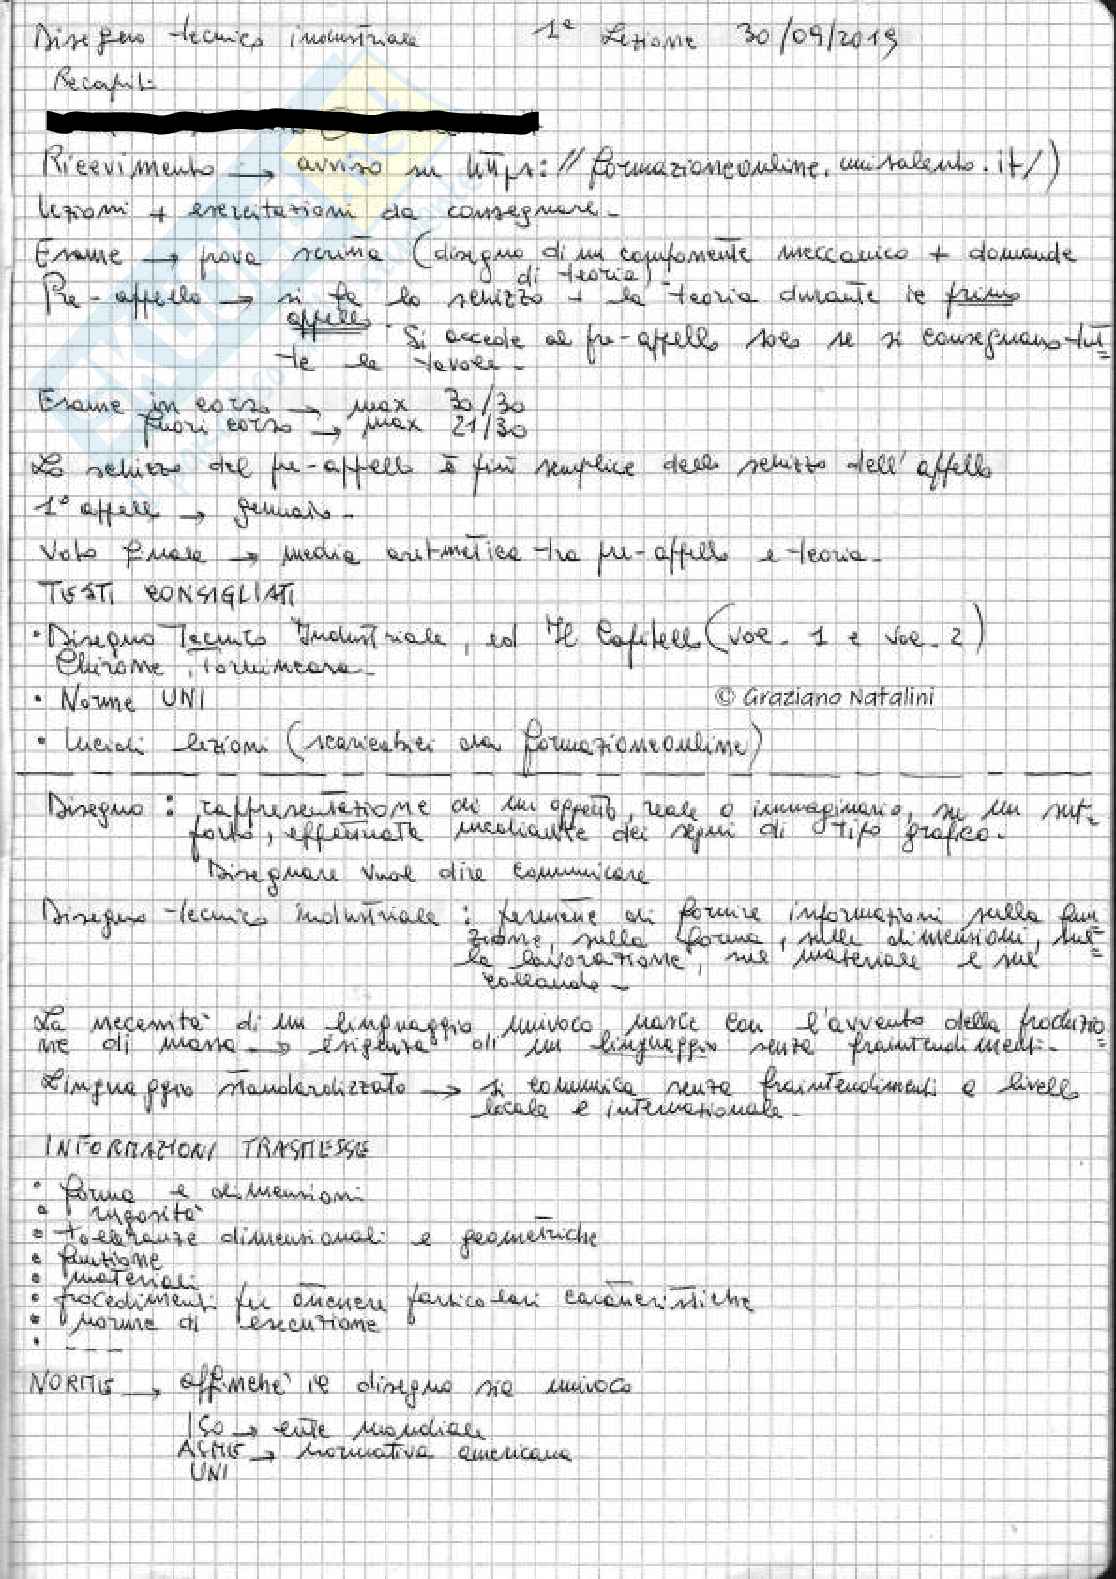 Disegno tecnico industriale 1ª Lezione 30/09/2019
Recapiti
Ricevimento → avviso su https://formazioneonline.unisalento.it/)
lezioni + esercitazioni da consegnare.
Esame → prova scritta (disegno di un componente meccanico + domande
di teoria)
Pre-appello → si fa lo schizzo + la teoria durante il primo
appello. Si accede al pre-appello solo se si consegnano tut=
te le tavole.
Esame in corso → max 30/30
fuori corso → max 21/30
Lo schizzo del pre-appello è più semplice dello schizzo dell'appello
1° appello → gennaio.
Voto finale → media aritmetica tra pre-appello e teoria.
TESTI CONSIGLIATI
• Disegno Tecnico Industriale, ed Il Capitello (vol. 1 e vol. 2)
Chirone, Tornincasa
• Norme UNI
© Graziano Natalini
• Lucidi lezioni (scaricabili da formazioneonline)
Disegno: rappresentazione di un oggetto, reale o immaginario, su un sup=
porto, effettuata mediante dei segni di tipo grafico.
Disegnare vuol dire comunicare
Disegno tecnico industriale: permette di fornire informazioni sulla fun=
zione, sulla forma, sulle dimensioni, sul=
la lavorazione, sul materiale e sul
collaudo.
La necessità di un linguaggio univoco nasce con l'avvento della produzio=
ne di massa → esigenza di un linguaggio senza fraintendimenti.
Linguaggio standardizzato → si comunica senza fraintendimenti a livello
locale e internazionale.
INFORMAZIONI TRASMESSE
• forma e dimensioni
• rugosità
• tolleranze dimensionali e geometriche
• funzione
• materiali
• procedimenti per ottenere particolari caratteristiche
• norme di esecuzione
• ----
NORME → affinché il disegno sia univoco
ISO → ente mondiale
ASME → normativa americana
UNI